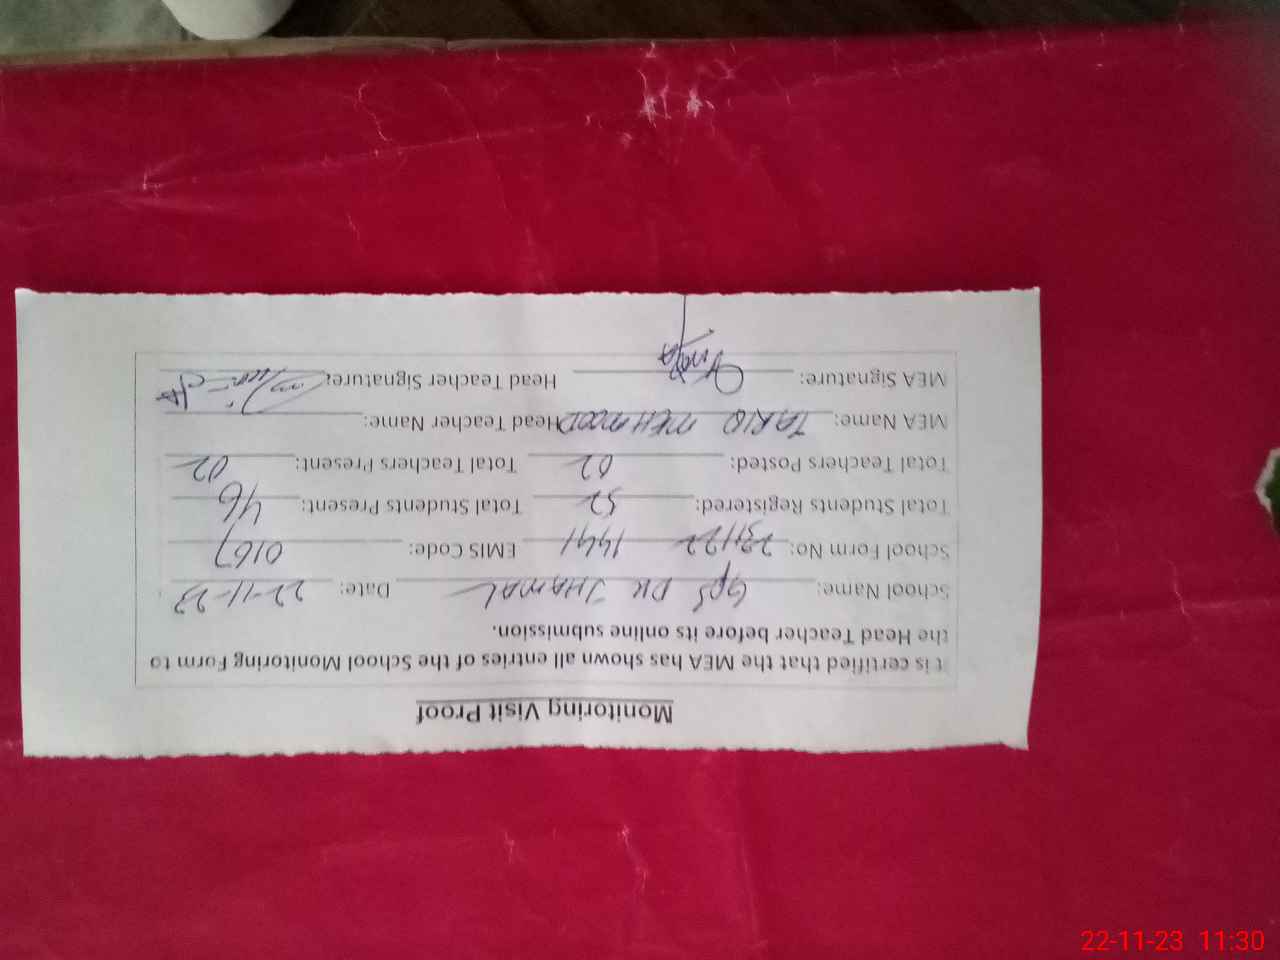 Monitoring Visit Proof
It is certified that the MEA has shown all entries of the School Monitoring Form to
the Head Teacher before its online submission.
School Name: GPS DK JHAMAL Date: 22-11-23
School Form No: 231122 1441 EMIS Code: 0167
Total Students Registered: 52 Total Students Present: 46
Total Teachers Posted: 02 Total Teachers Present: 02
MEA Name: TARIQ MEHMOOD Head Teacher Name:
MEA Signature: Head Teacher Signature:
22-11-23 11:30